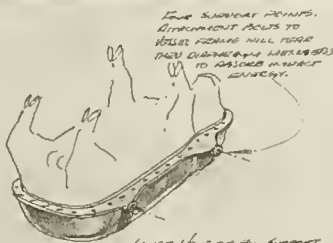 FOUR SUPPORT POINTS.
ATTACHMENT BOLTS TO
VESSEL FRAME WILL TEAR
THRU DIAPHRAGM MEMBERS
TO ABSORB IMPACT
ENERGY.
SUPPORT